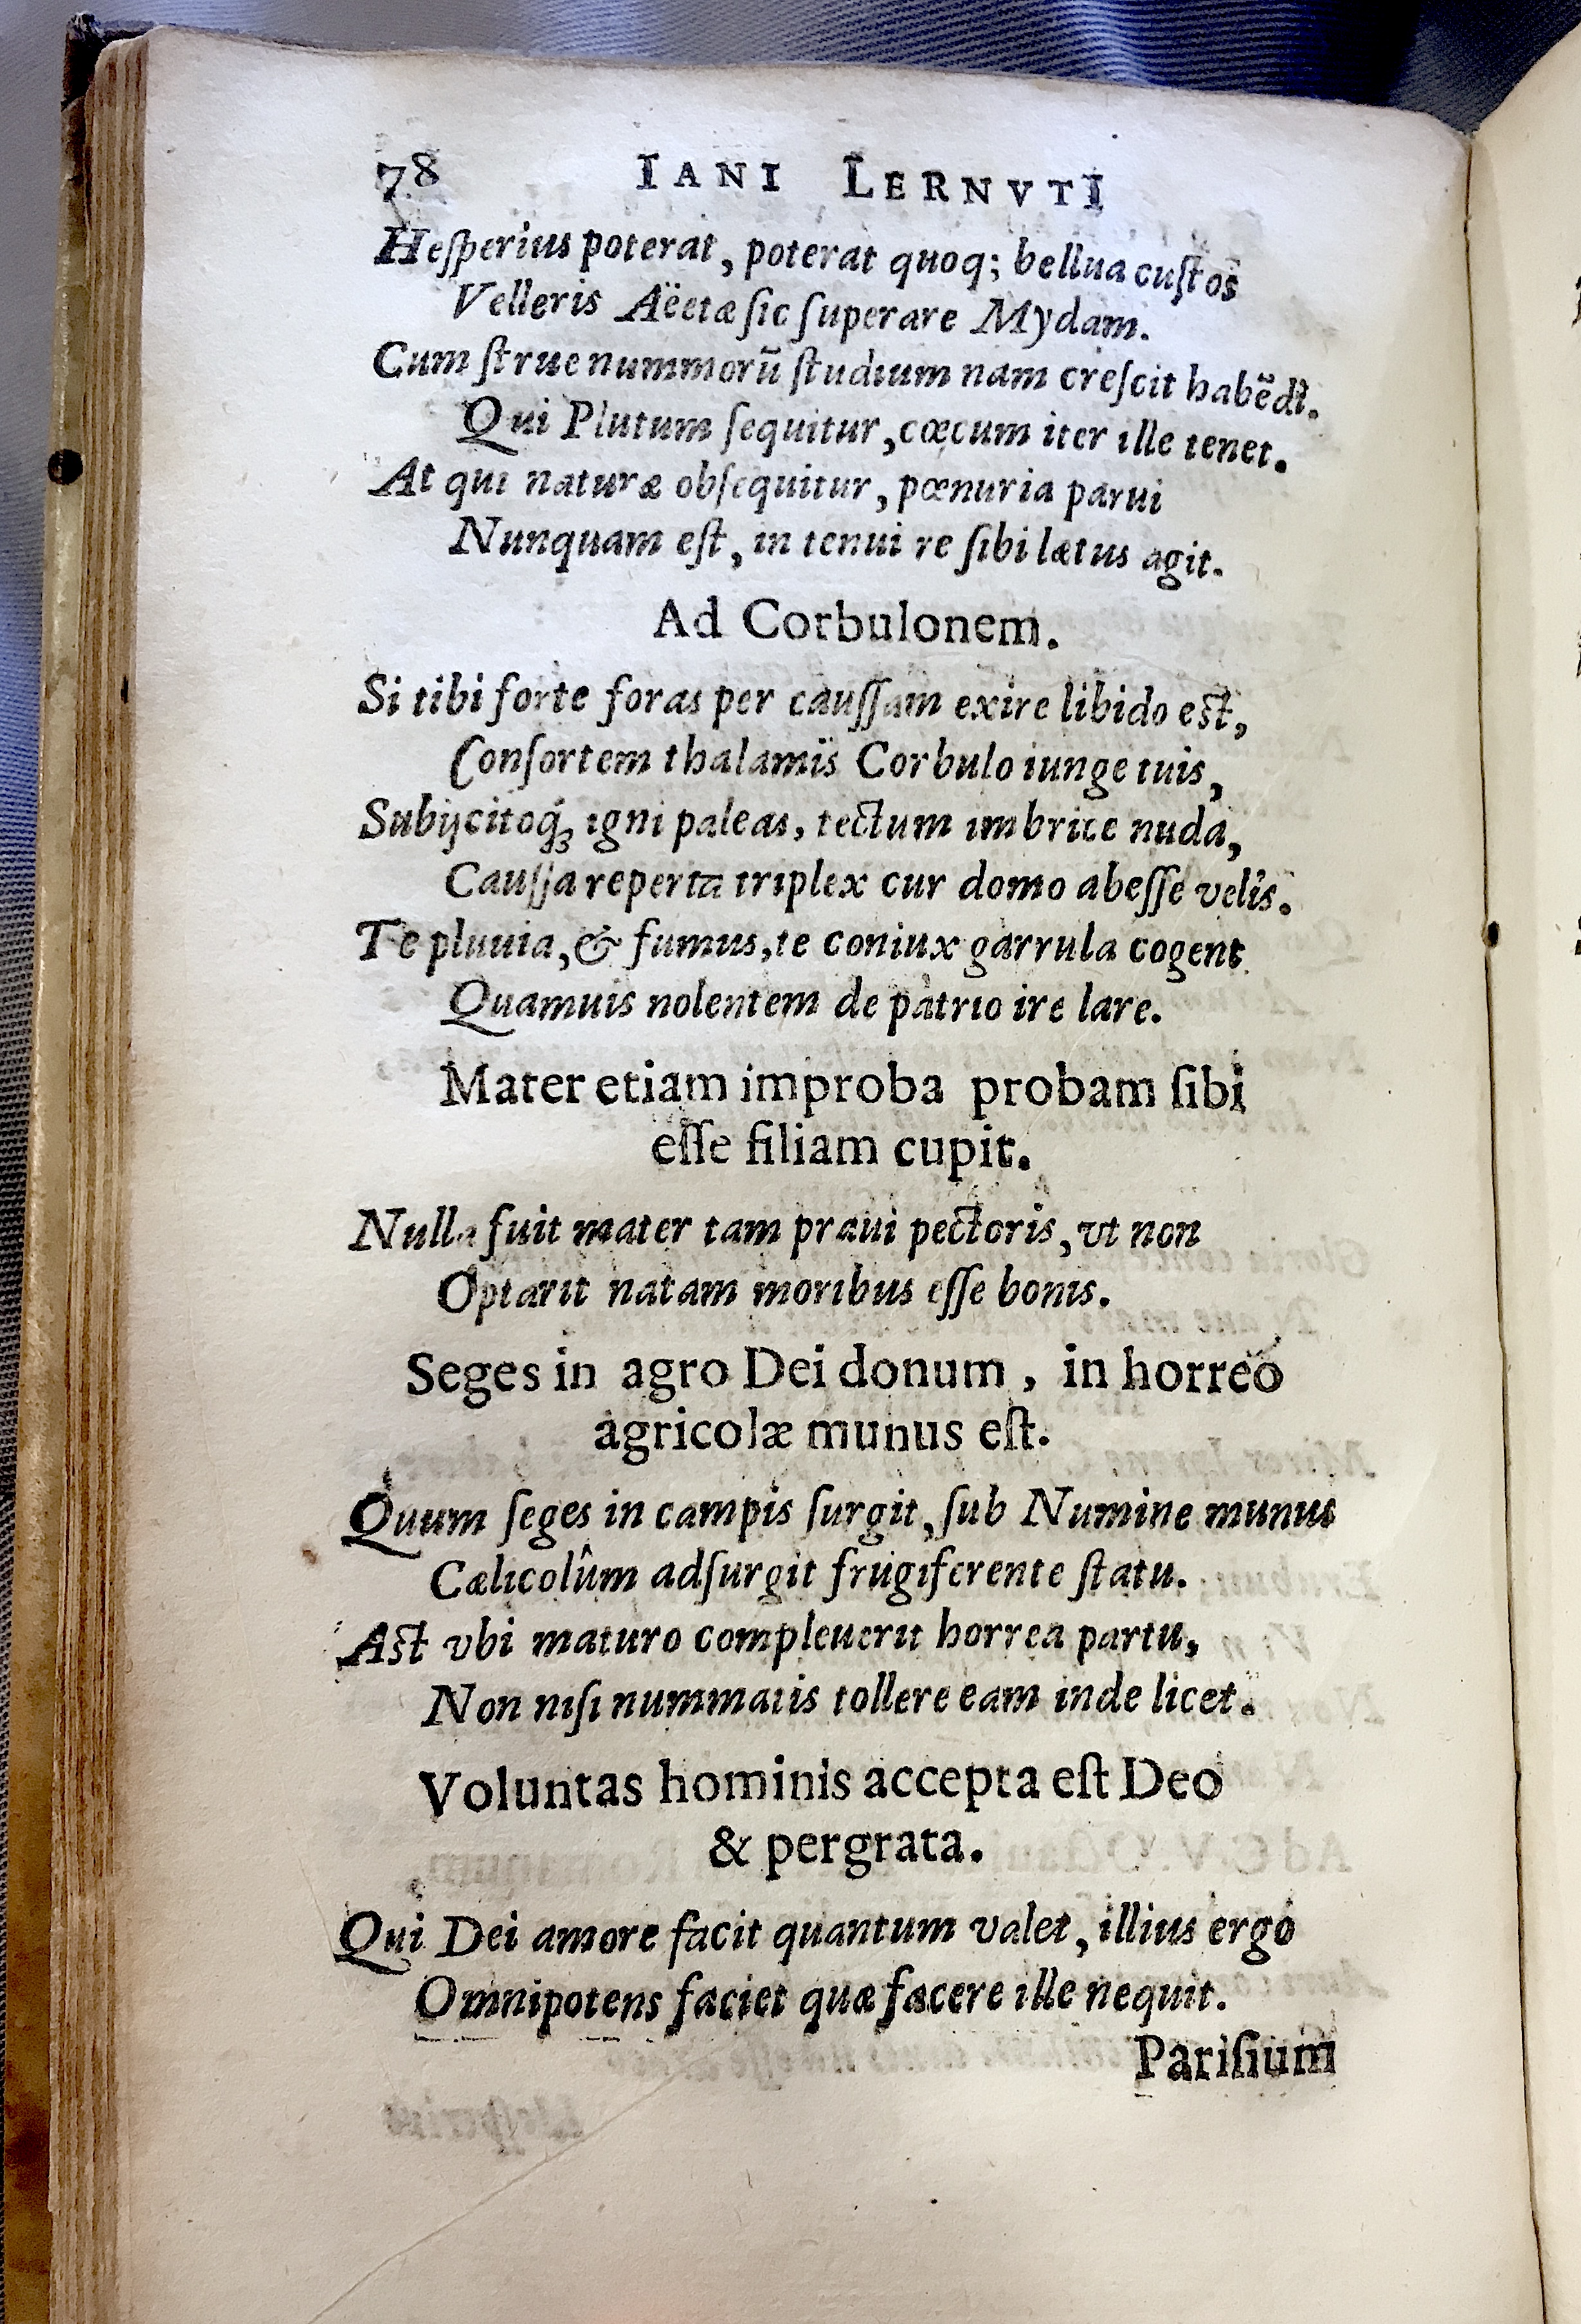 78 IANI LERNVTI
Heſperius poterat, poterat quoq; bellua cuſtos
Velleris Aëetæ ſic ſuperare Mydam.
Cum ſtrue nummorũ ſtudium nam creſcit habẽdi.
Qui Plutum ſequitur, cœcum iter ille tenet.
At qui naturæ obſequitur, pœnuria parui
Nunquam eſt, in tenui re ſibi lætus agit.
Ad Corbulonem.
Si tibi forte foras per cauſſam exire libido eſt,
Conſortem thalamis Corbulo iunge tuis,
Subijcitoq́ꝫ igni paleas, tectum imbrice nuda,
Cauſſa reperta triplex cur domo abeſſe velis.
Te pluuia, & fumus, te coniux garrula cogent
Quamuis nolentem de patrio ire lare.
Mater etiam improba probam ſibi
eſſe filiam cupit.
Nulla fuit mater tam praui pectoris, vt non
Optarit natam moribus eſſe bonis.
Seges in agro Dei donum, in horreo
agricolæ munus eſt.
Quum ſeges in campis ſurgit, ſub Numine munus
Cælicolûm adſurgit frugiferente ſtatu.
Aſt vbi maturo compleuerit horrea partu,
Non niſi nummatis tollere eam inde licet.
Voluntas hominis accepta eſt Deo
& pergrata.
Qui Dei amore facit quantum valet, illius ergo
Omnipotens faciet quæ facere ille nequit.
Pariſium